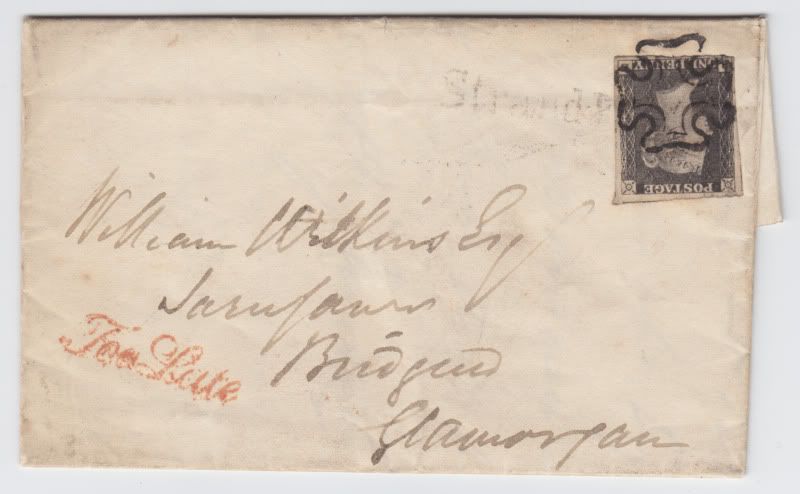 POSTAGE
ONE PENNY
William Wilkins Esq
Bridgend
Glamorgan
Too Late